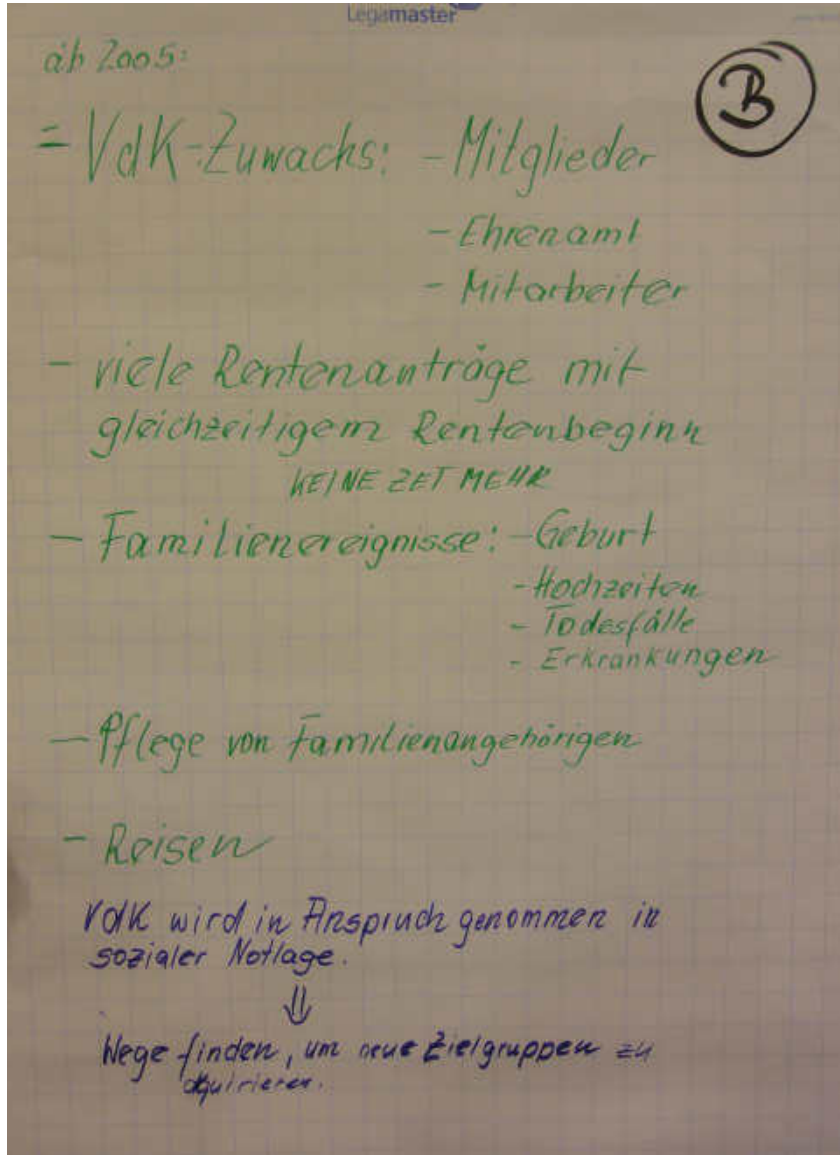 Legamaster
ab 2005:
B
= VdK-Zuwachs: - Mitglieder
- Ehrenamt
- Mitarbeiter
- viele Rentenanträge mit
gleichzeitigem Rentenbeginn
KEINE ZET MEHR
- Familienereignisse: - Geburt
- Hochzeiten
- Todesfälle
- Erkrankungen
- Pflege von Familienangehörigen
- Reisen
VdK wird in Anspruch genommen in
sozialer Notlage.
⇓
Wege finden, um neue Zielgruppen zu
aquirieren.